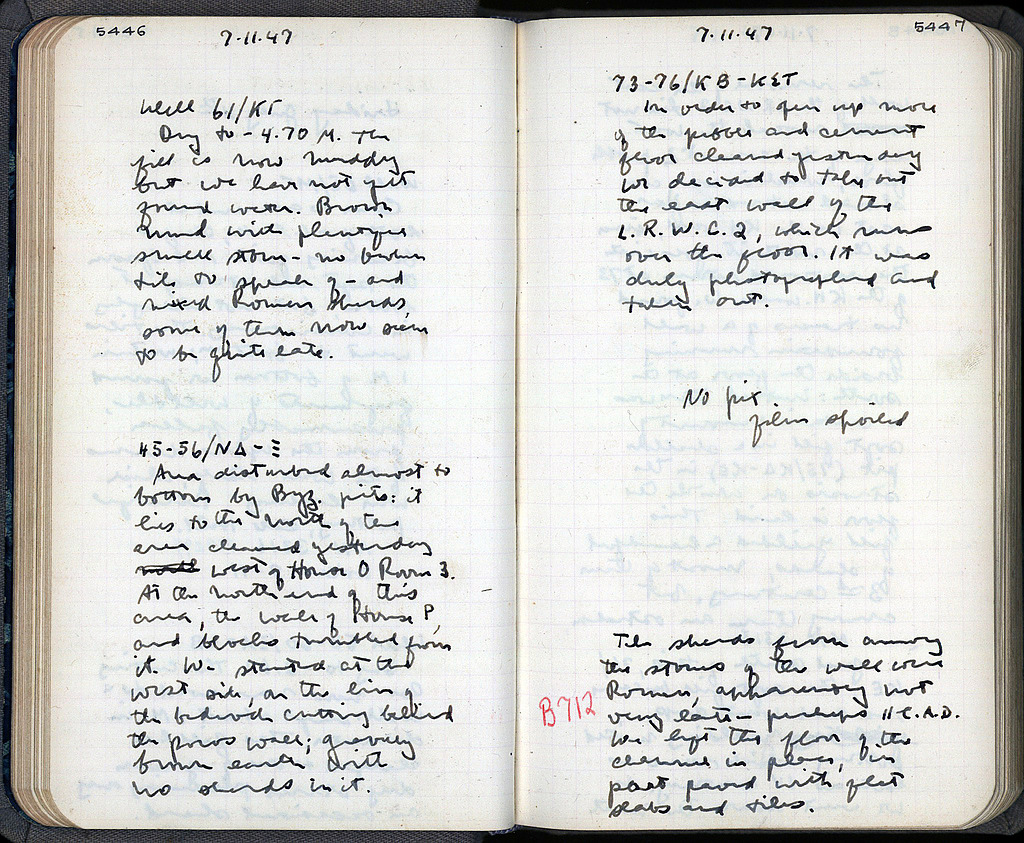 5446
7.11.47
Well 61/KΓ
Dug to - 4.70 M. The
fill is now muddy
but we have not yet
found water. Brown
mud with plentiful
small stones - no broken
tile to speak of - and
mixed Roman sherds,
some of them now seem
to be quite late.
45-56/ΝΔ-Ξ
Area disturbed almost to
bottom by Byz. pits: it
lies to the north of the
area cleaned yesterday
north west of House O Room 3.
At the north end of this
area, the wall of House P,
and blocks tumbled from
it. We started at the
west side, on the line of
the bedrock cutting behind
the poros wall; gravelly
brown earth with
no sherds in it.
5447
7.11.47
73-76/ΚΒ-ΚΣΤ
In order to open up more
of the pebble and cement
floor cleaned yesterday
we decided to take out
the east wall of the
L.R.W.C.2, which runs
over the floor. It was
duly photographed and
taken out.
No pix.
film spoiled
The sherds from among
the stones of the wall were
Roman, apparently not
B712
very late - perhaps II C.A.D.
We left the floor of the
channel in place, in
part paved with flat
slabs and tiles.